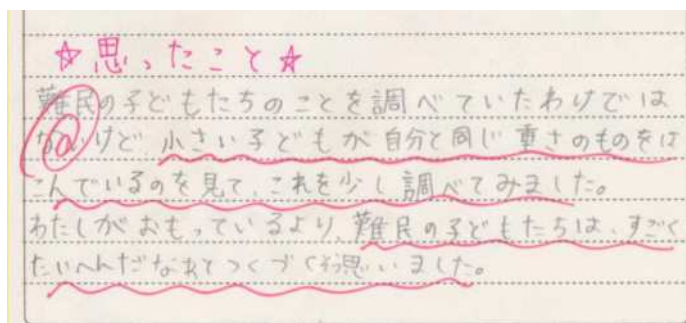 ☆思ったこと☆
難民の子どもたちのことを調べていたわけでは
ないけど 小さい子どもが自分と同じ重さのものをは
こんでいるのを見て、これを少し調べてみました。
わたしがおもっているより、難民の子どもたちは、すごく
たいへんだなあとつくづくそう思いました。